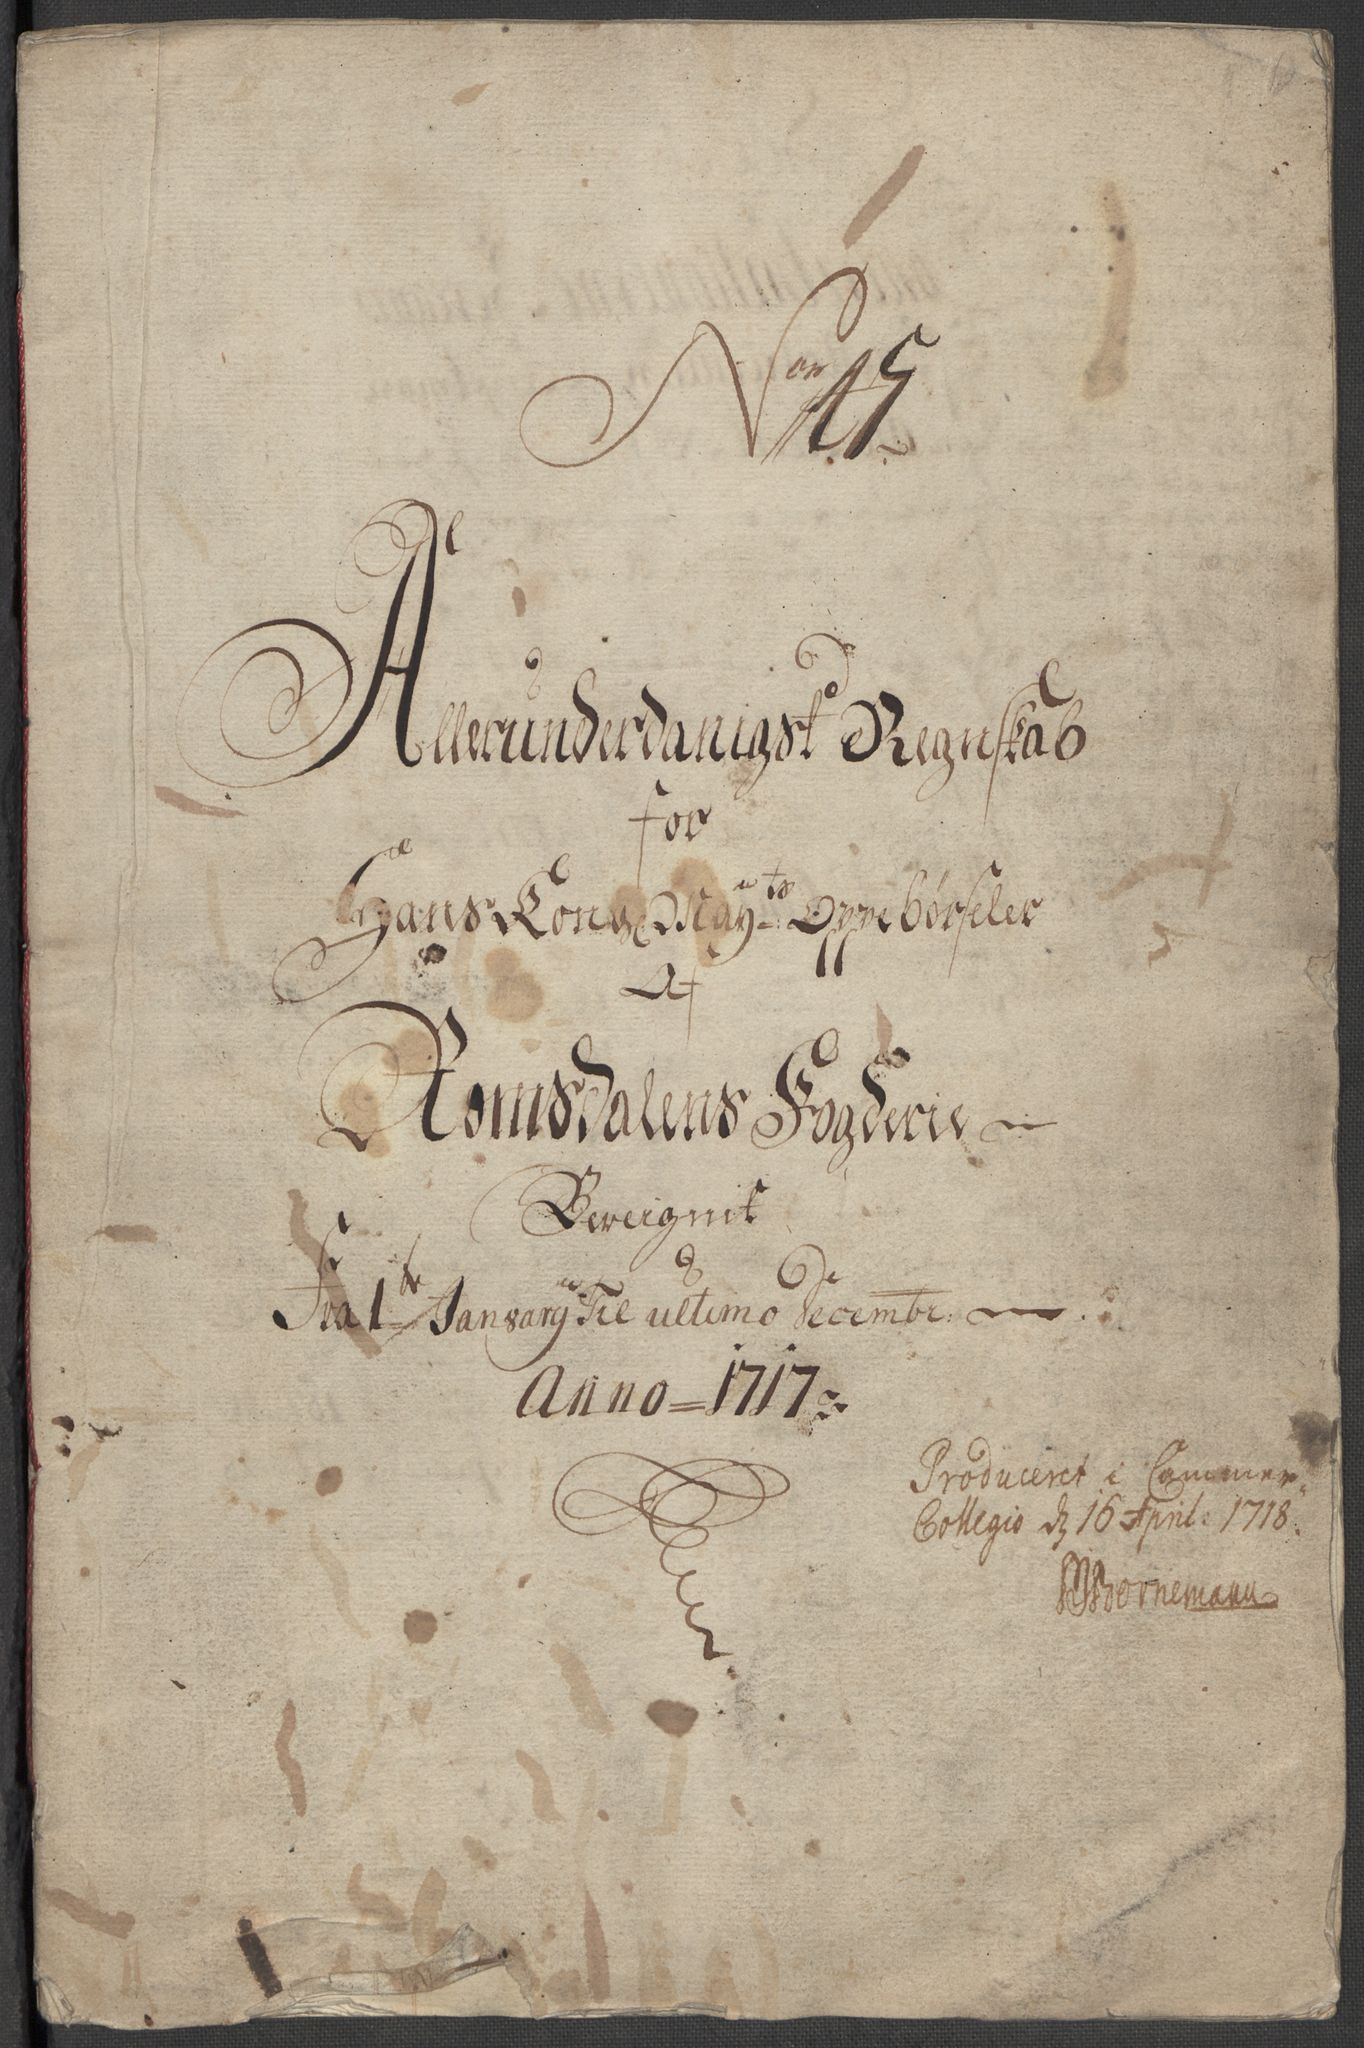 No 15
Allerunderdanigst Regnskab
for
Hans Kong May:ts Oppebørseler
Af
Romsdalens Fogderie
Bereignit
Fra 1te January Til ultimo Decembr:
Anno = 1717
Produceret i Cammer
Collegio d 16 April: 1718
Bornemann